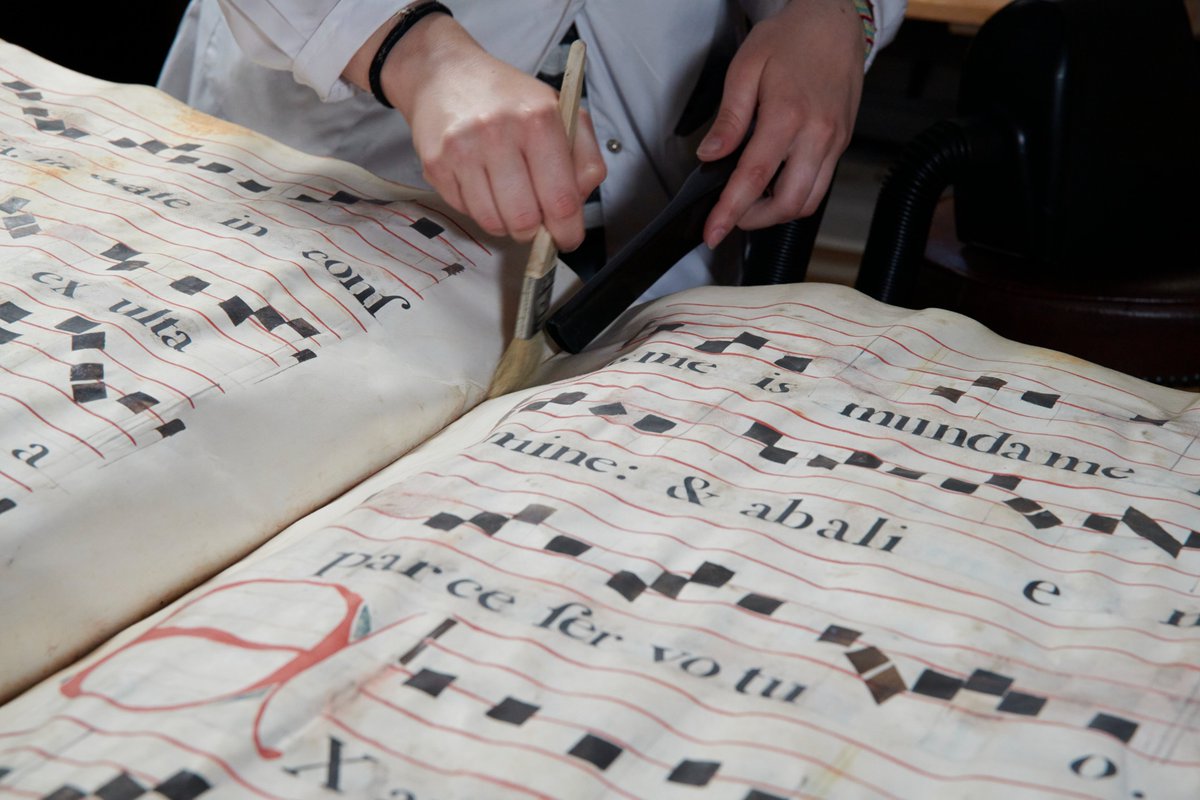 in conſ
ex ulta
a
me is munda me
mine: & abali
e
par ce ſer vo tu
o.
X a